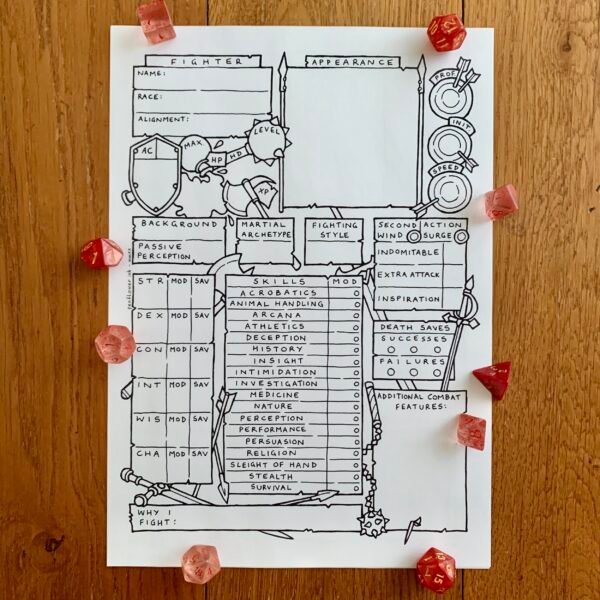 FIGHTER
NAME:
RACE:
ALIGNMENT:
APPEARANCE
PROF
INIT
SPEED
AC
MAX
HP
HD
LEVEL
XP
BACKGROUND
PASSIVE
PERCEPTION
MARTIAL
ARCHETYPE
FIGHTING
STYLE
SECOND
WIND
ACTION
SURGE
INDOMITABLE
EXTRA ATTACK
INSPIRATION
DEATH SAVES
SUCCESSES
FAILURES
STR MOD SAV
DEX MOD SAV
CON MOD SAV
INT MOD SAV
WIS MOD SAV
CHA MOD SAV
SKILLS MOD
ACROBATICS
ANIMAL HANDLING
ARCANA
ATHLETICS
DECEPTION
HISTORY
INSIGHT
INTIMIDATION
INVESTIGATION
MEDICINE
NATURE
PERCEPTION
PERFORMANCE
PERSUASION
RELIGION
SLEIGHT OF HAND
STEALTH
SURVIVAL
ADDITIONAL COMBAT
FEATURES:
WHY I
FIGHT:
15